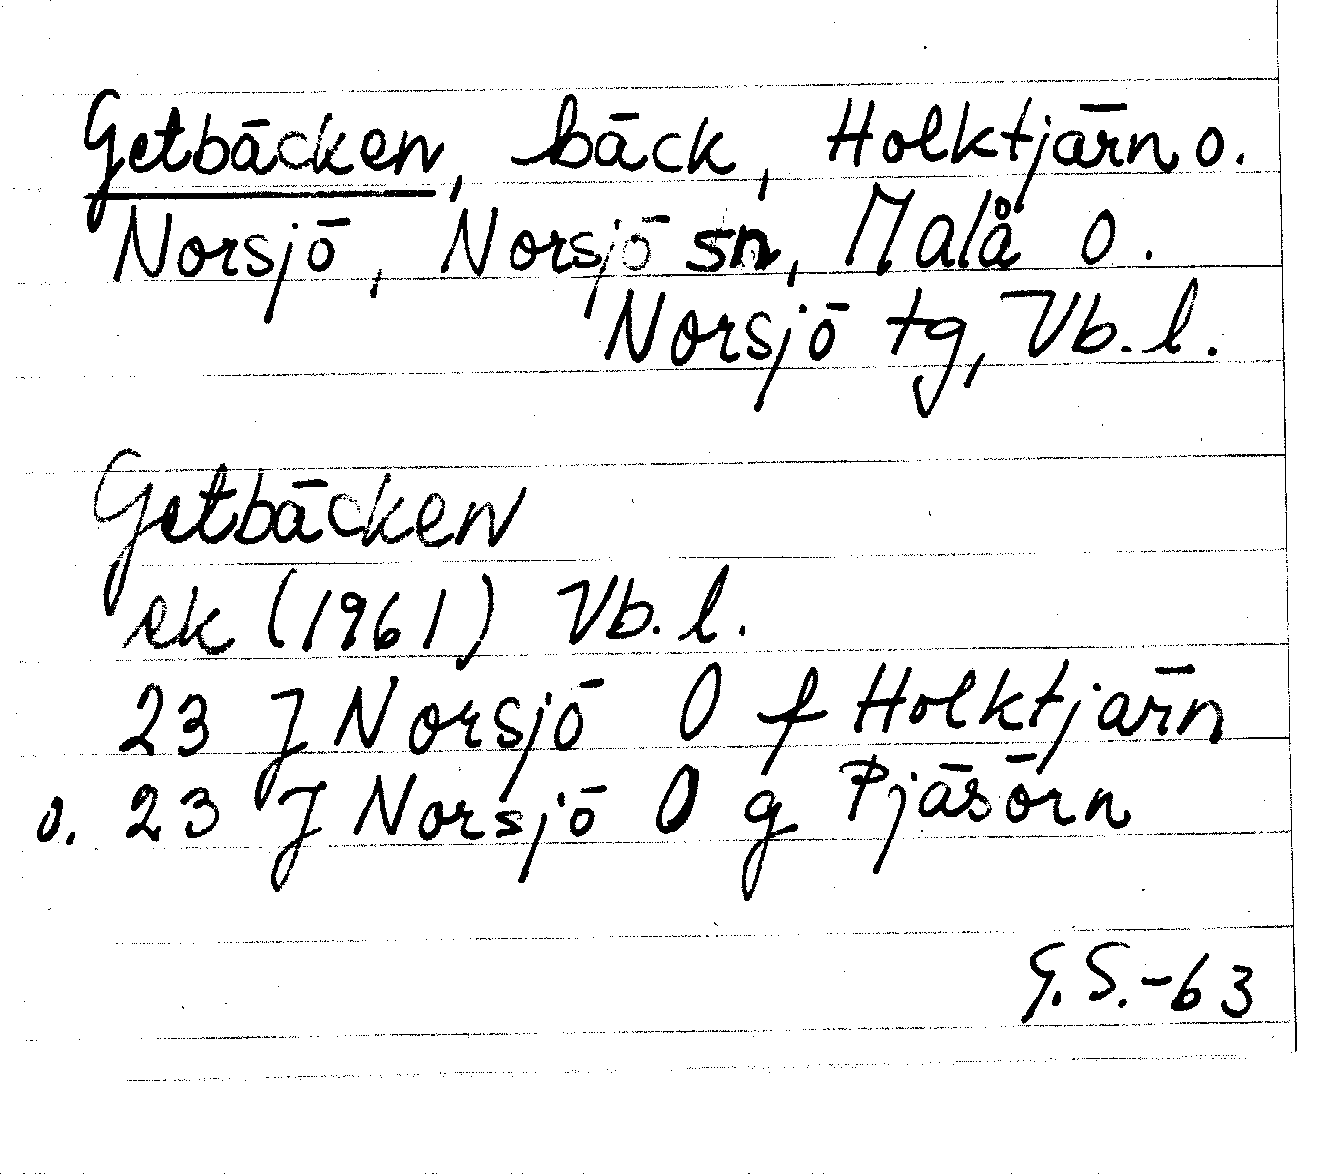 Getbäcken, bäck, Holktjärn o.
Norsjö, Norsjö sn, Malå o.
Norsjö tg, Vb. l.
Getbäcken
ek (1961) Vb. l.
23 J Norsjö O f Holktjärn
o. 23 J Norsjö O g Pjäsörn
G. S. -63